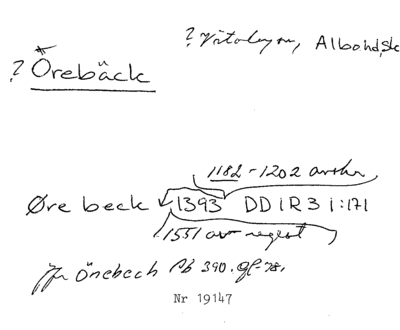 ? Vitaby sn, Albo hd, Sk
? Örebäck
1182-1202 avskr
Øre beck 1393 DD 1R3 1:171
1551 av regest
jfr Önebech Pb 390. gl-78.
Nr 19147